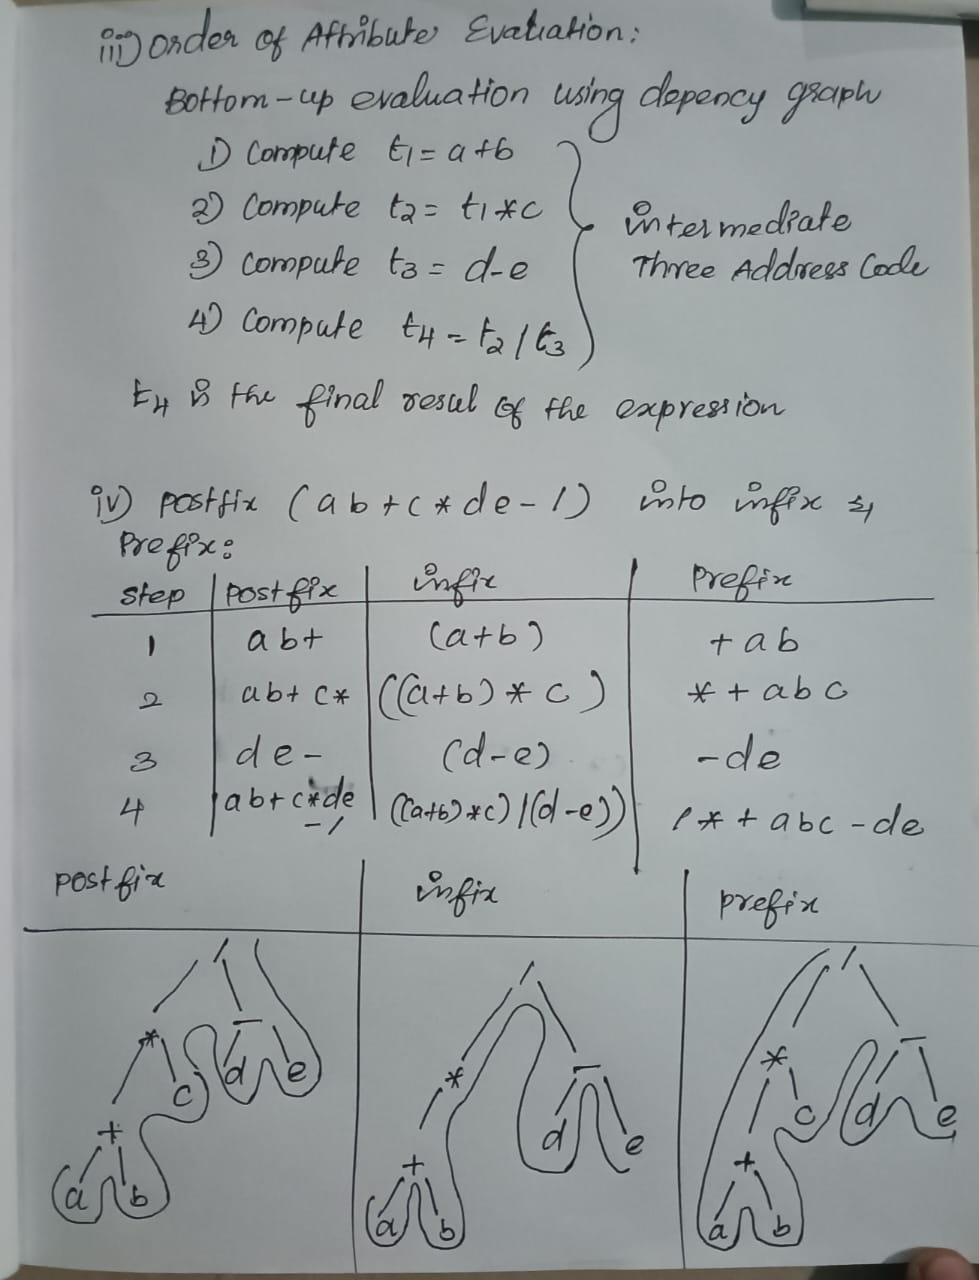 iii) Order of Attribute Evaluation:
Bottom-up evaluation using depency graph
1) Compute t1 = a+b
2) Compute t2 = t1*c
3) Compute t3 = d-e
4) Compute t4 = t2/t3
intermediate
Three Address Code
t4 is the final resul of the expression
iv) Postfix (ab+c*de-/) into infix &
Prefix:
Step Postfix infix Prefix
1 ab+ (a+b) +ab
2 ab+c* ((a+b)*c) *+abc
3 de- (d-e) -de
4 ab+c*de ((a+b)*c)/(d-e)) /*+abc-de
-/
postfix infix prefix
/ / /
* - * - * -
c d e d e c d e
+ + +
a b a b a b